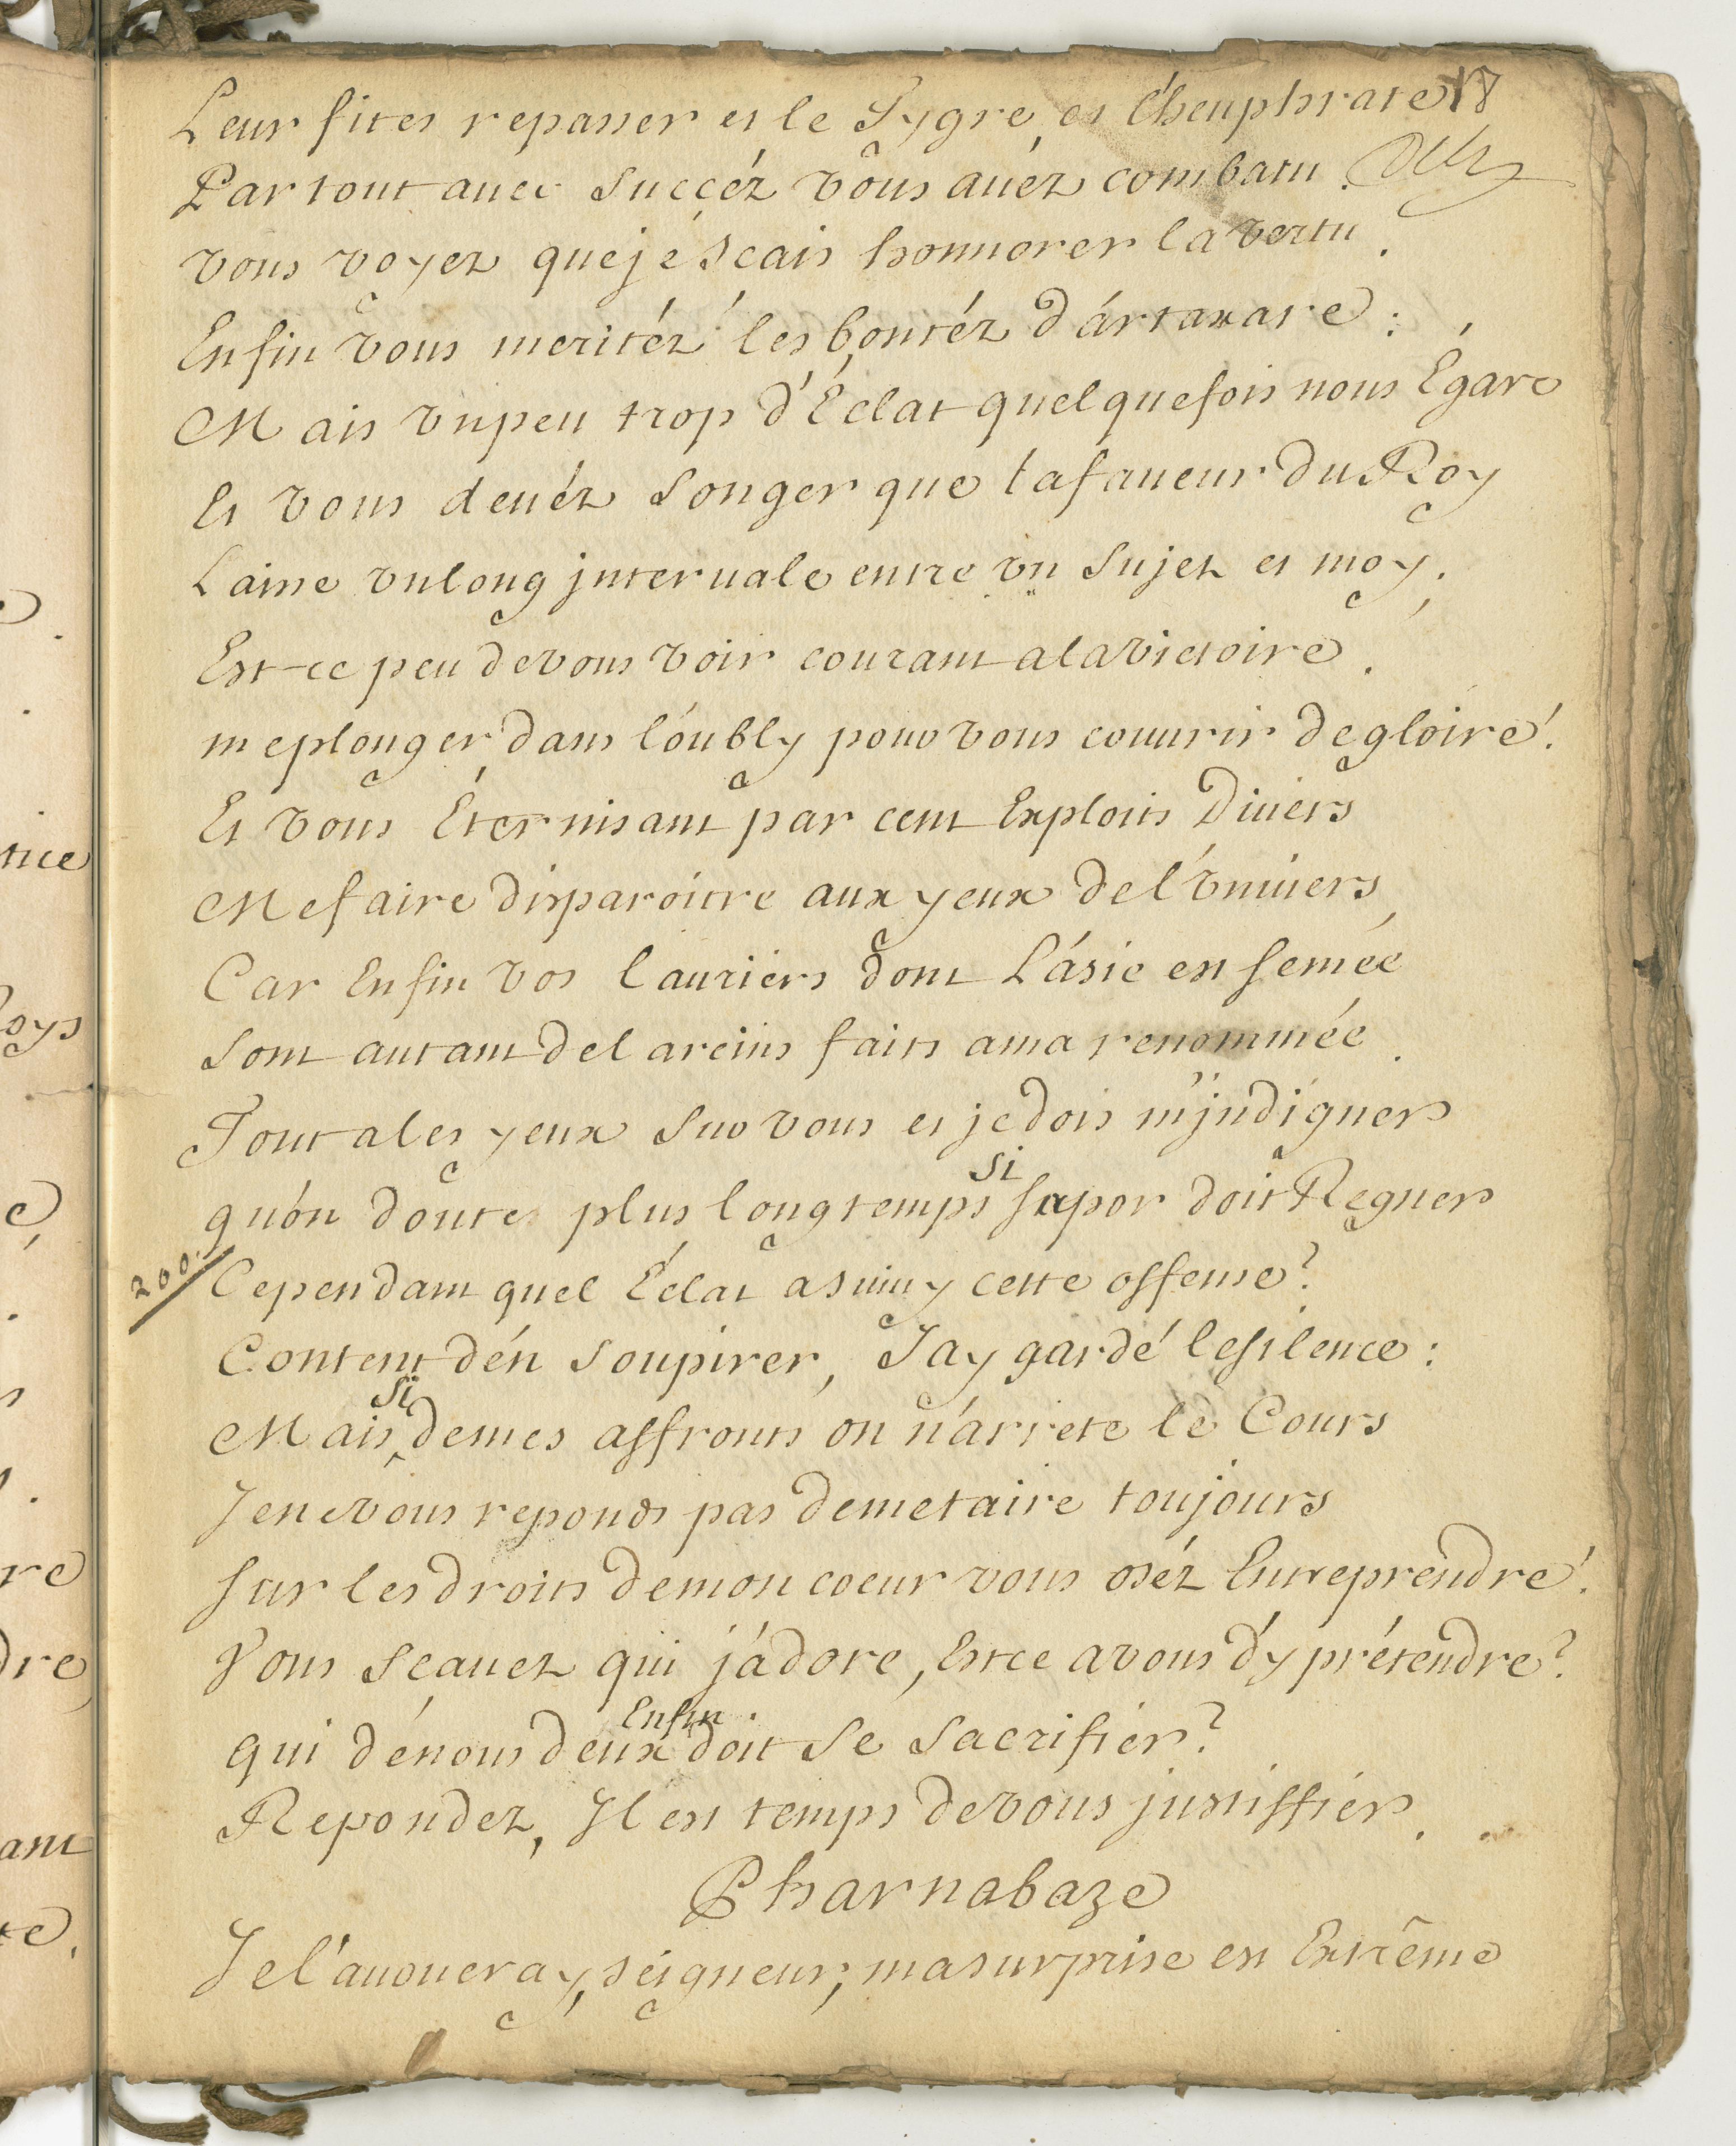 Leur fites repasser et le Tygre, et l'heuphrate 18
Par tout auec succéz vous auéz combatu.
vous voyez que je scais honnorer la vertu.
Enfin vous meritéz les bontéz d'ártaxare :
Mais vn peu trop d'Éclat quelquefois nous Égare
Et vous deuéz songer que la faueur du Roy
Laisse vn long jnteruale entre vn sujet et moy.
Est-ce peu de vous voir courant a la victoire,
me plonger dans l'oubly pour vous couurir de gloire!
Et vous Éternisant par cent Exploits Diuers
Me faire disparoitre aux yeux de l'vniuers,
Car Enfin vos lauriers dont L'ásie est semée
sont autant de larcins faits a ma renommée.
Tout a les yeux sur vous et je dois m'jndigner
qu'on doute plus longtemps si sapor doit Regner
200.
Cependant quel Éclat a suiuy cette offense?
Content d'én soupirer, J'ay gardé le silence :
Mais si de mes affronts on n'arrete le Cours
Je ne vous reponds pas de me taire toujours
sur les droits de mon coeur vous oséz Entreprendre!
Vous scauez qui j'adore, Est ce a vous d'y prétendre?
qui de nous deux Enfin doit se sacrifier?
Repondez, Il est temps de vous justiffier.
Pharnabaze
Je l'auoueray, seigneur; ma surprise est Extrême